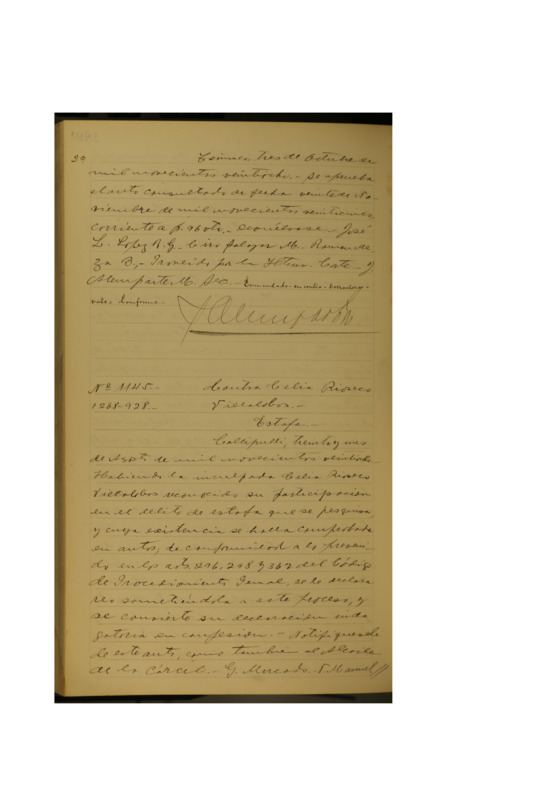 Temuco, tres de Octubre de
mil novecientos veintiocho.- Se aprueba
el auto consultado de fecha veinte de No-
viembre de mil novecientos veintisiete,
corriente a f. Devuélvase.- José
L. Lopez R. G. Ciro Salazar M. Roman de
za B.- Proveido por la Iltma. Corte.- J.
Alemparte M. Sec.- Enmendado
vale. Conforme.-
Nº 1145.- Contra Celia Rioseco
1268-928.- Villalobos.-
Estafa.-
Collipulli, treinta y uno
de Agosto de mil novecientos veintiocho.-
Habiendo la inculpada Celia Rioseco
Villalobos reconocido su participacion
en el delito de estafa que se pesquisa
y cuya existencia se halla comprobada
en autos, de conformidad a lo preveni-
do en los arts. 296, 298 y 367 del Código
de Procedimiento Penal, se la declara
reo sometiéndola a este proceso, y
se convierte su declaracion inda
gatoria en confesion.- Notifíquesele
este auto, como tambien al Alcaide
de la Cárcel.- G. Mercado.- Manuel //